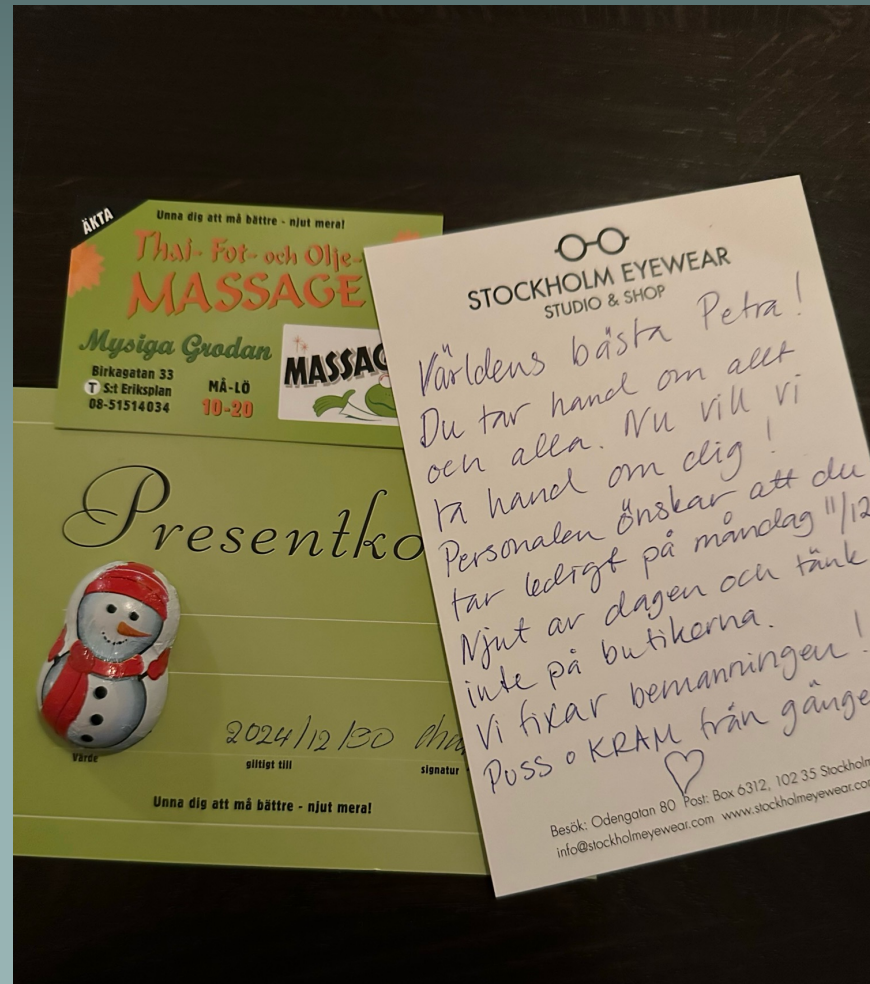 ÄKTA
Unna dig att må bättre - njut mera!
Thai- Fot- och Olje-
MASSAGE
Mysiga Grodan
Birkagatan 33
T S:t Eriksplan
08-51514034
MÅ-LÖ
10-20
MASSAG
Presentko
2024/12/30
Värde
giltigt till
signatur
Unna dig att må bättre - njut mera!
STOCKHOLM EYEWEAR
STUDIO & SHOP
Världens bästa Petra!
Du tar hand om allt
och alla. Nu vill vi
ta hand om dig!
Personalen önskar att du
tar ledigt på måndag 11/12
Njut av dagen och tänk
inte på butikerna.
Vi fixar bemanningen!
PUSS o KRAM från gänge
Besök: Odengatan 80 Post: Box 6312, 102 35 Stockholm
info@stockholmeyewear.com www.stockholmeyewear.co